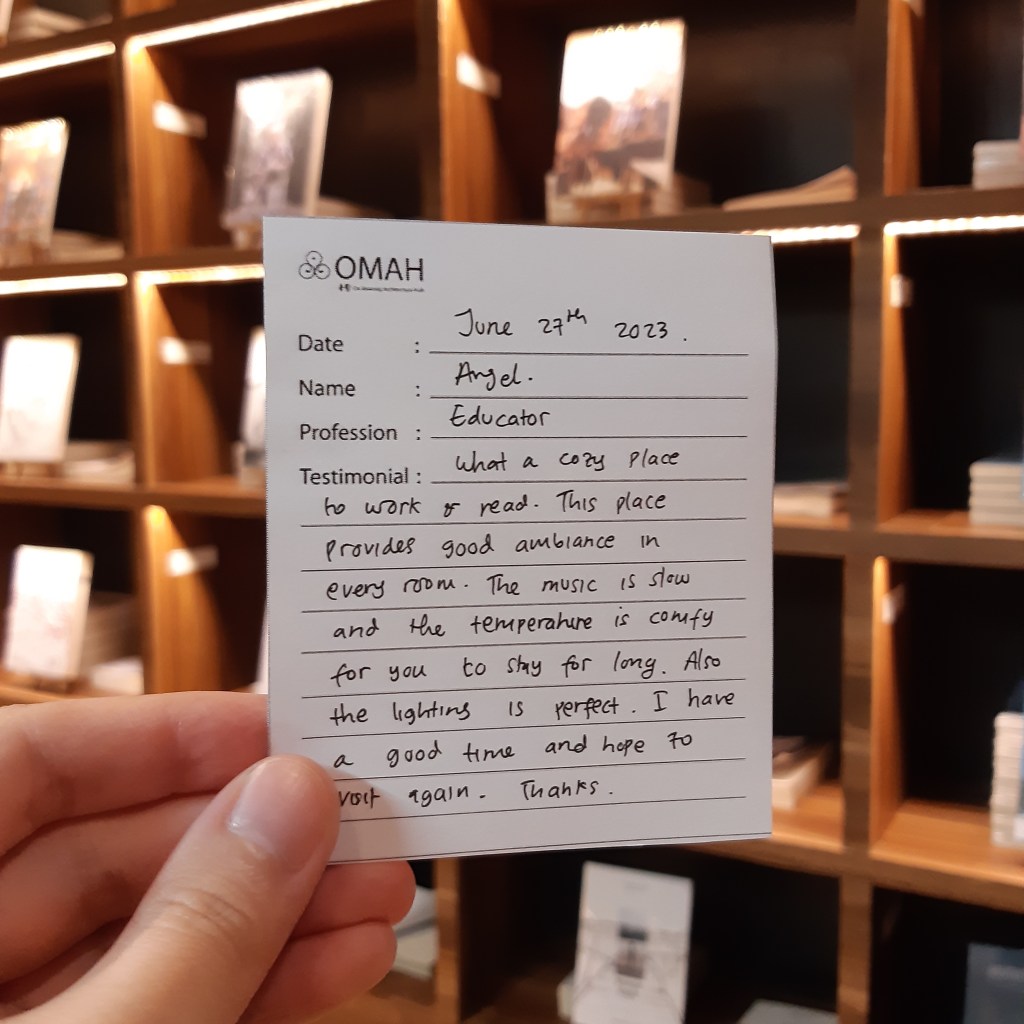 OMAH
Date : June 27th 2023.
Name : Angel.
Profession : Educator
Testimonial : What a cozy place
to work & read. This place
provides good ambiance in
every room. The music is slow
and the temperature is comfy
for you to stay for long. Also
the lighting is perfect. I have
a good time and hope to
visit again. Thanks.